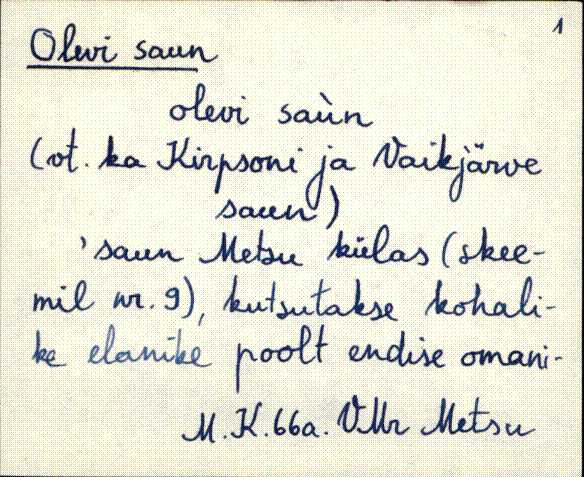 1
Olevi saun
olevi saùn
(vt. ka Kirpsoni ja Vaikjärve
saun)
'saun Metsu külas (skee-
mil nr. 9), kutsutakse kohali-
ke elanike poolt endise omani-
M.K. 66a. VMr Metsu